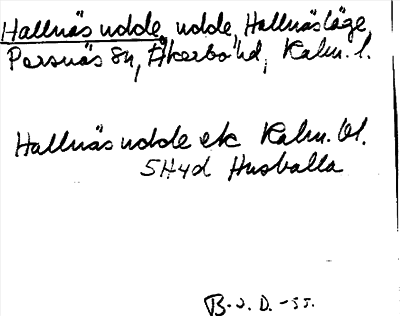 Hallnäs udde, udde, Hallnäs läge,
Persnäs sn, Åkerbo hd, Kalm. l.
Hallnäs udde ek Kalm. bl.
5H4d Husvalla
B-a. D. -55.